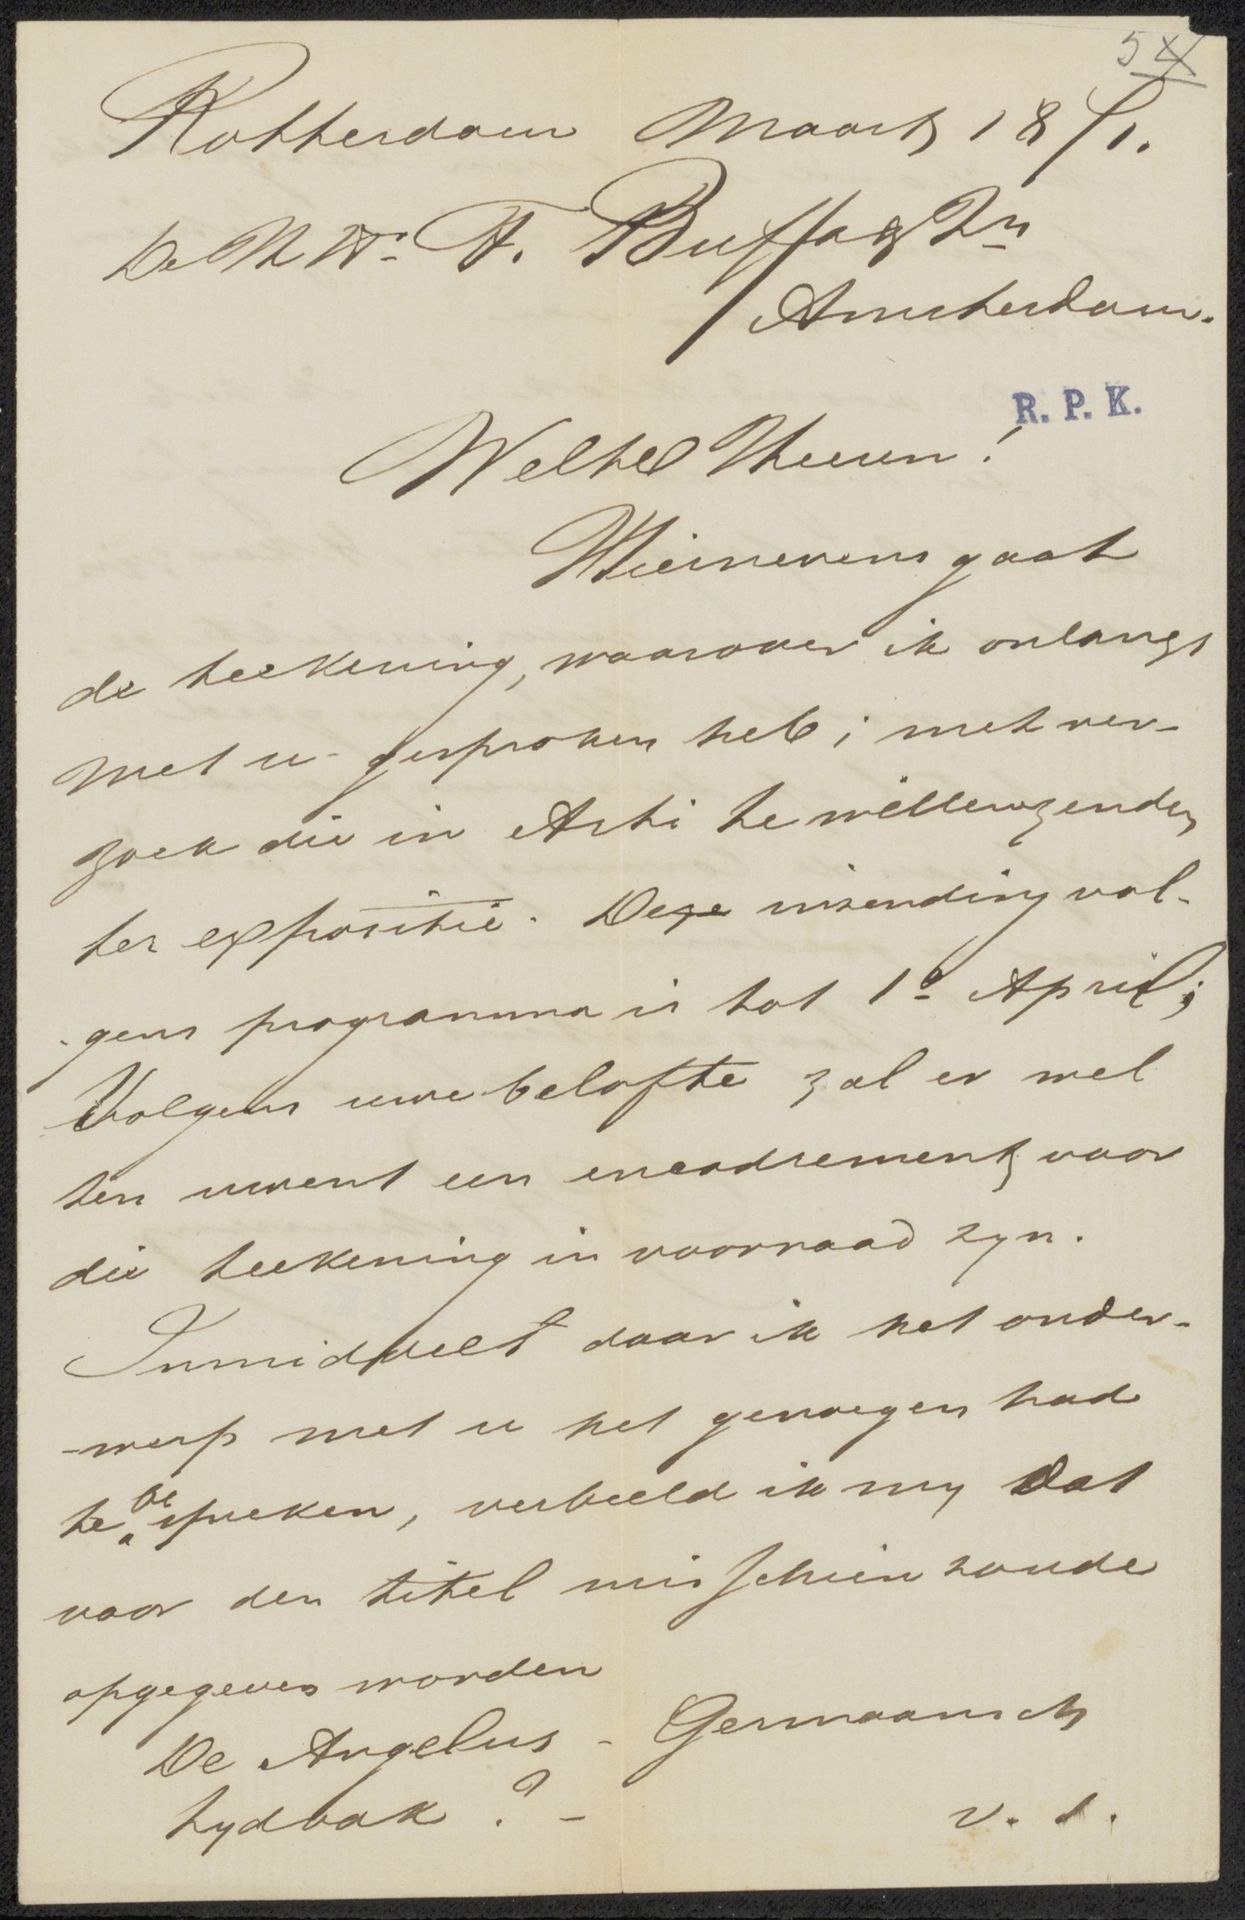 54
Rotterdam Maart 18/91.
De HHrn F. Buffa & Zn
Amsterdam.
R. P. K.
WelEd Heeren!
Hiernevens gaat
de teekening, waarover ik onlangs
met u gesproken heb; met ver-
zoek die in Arti te willen zenden
ter expositie. Deze inzending vol-
gens programma is tot 1e April;
Volgens uwe belofte zal er wel
ten uwent een encadrement voor
die teekening in voorraad zyn.
Inmiddels daar ik het onder-
werp met u het genoegen had
te bespreken, verbeeld ik my dat
voor den titel misschien zoude
opgegeven worden
De Angelus - Germaansch
tydvak ? -
v. s.